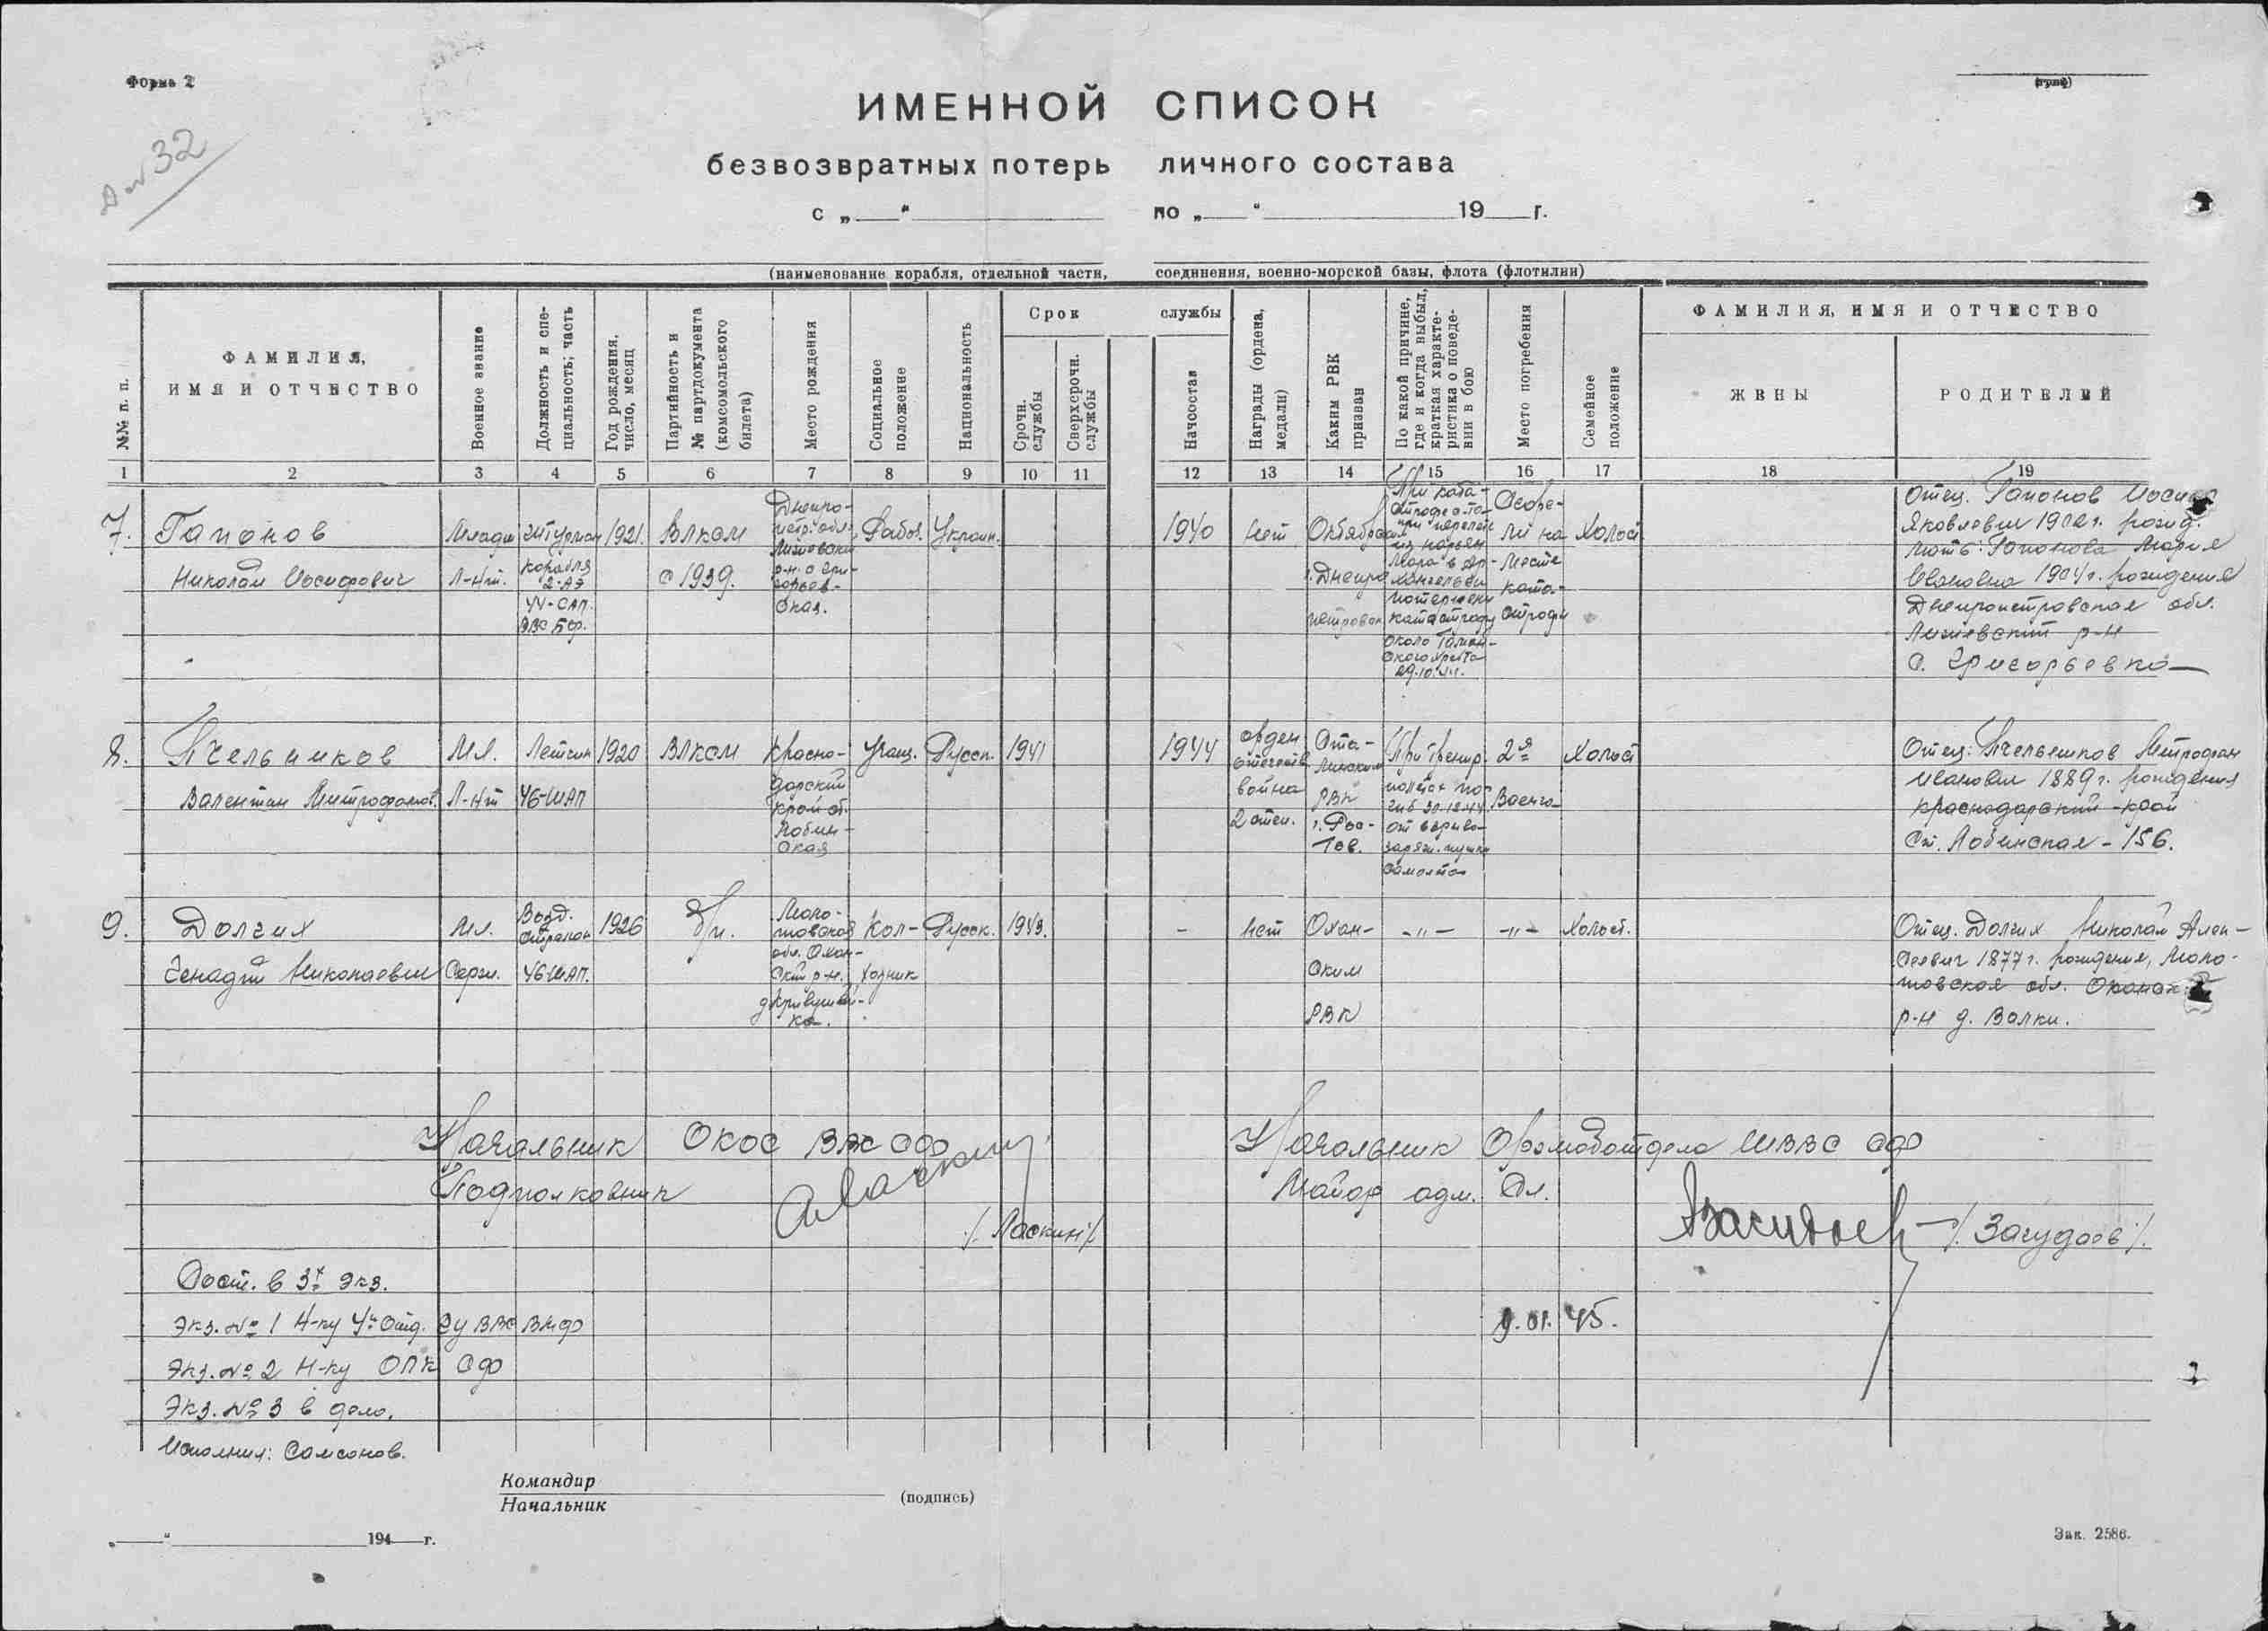 Форма 2
(гриф)
32
ИМЕННОЙ СПИСОК
безвозвратных потерь личного состава
с „ “ по „ “ 19 г.
(наименование корабля, отдельной части, соединения, военно-морской базы, флота (флотилии)
№№ п. п.
ФАМИЛИЯ,
ИМЯ И ОТЧЕСТВО
Военное звание
Должность и спе-
циальность; часть
Год рождения,
число, месяц
Партийность и
№ партдокумента
(комсомольского
билета)
Место рождения
Социальное
положение
Национальность
Срок службы
Срочн.
службы
Сверхсрочн.
службы
Начсостав
Награды (ордена,
медали)
Каким РВК
призван
По какой причине,
где и когда выбыл,
краткая характе-
ристика о поведе-
нии в бою
Место погребения
Семейное
положение
ФАМИЛИЯ, ИМЯ И ОТЧЕСТВО
ЖЕНЫ
РОДИТЕЛЕЙ
1 2 3 4 5 6 7 8 9 10 11 12 13 14 15 16 17 18 19
7.
Гапонов
Николай Иосифович
Младш
Л-нт.
Штурман
корабля
2-АЭ
44-САП.
ВВС БФ.
1921.
ВЛКСМ
с 1939.
Днепро-
петр. обл.
Лиховский
р-н. с Гри-
горьев-
ская.
Рабоч.
Украин.
1940
нет
Октябрьск
г. Днепро
петровск
При ката-
строфе с-та
при перелете
из Нарьян
Мара в Ар-
хангельск
потерпели
катастрофу
около
29.10.44.
Сгоре-
ли на
месте
ката-
строфы
Холост
Отец. Гапонов Иосиф
Яковлевич 1900 г. рожд.
Мать: Гапонова Мария
Ивановна 1904 г. рождения
Днепропетровская обл.
Лиховский р-н
с. Григорьевка
8.
Пчельников
Валентин Митрофанов.
Мл.
Л-нт
Летчик
46-ШАП
1920
ВЛКСМ
Красно-
дарский
край ст.
Лабин-
ская
Учащ.
Русск.
1941
1944
орден
отечеств
война
2 степ.
Ста-
линским
РВК
г. Рос-
тов.
При тренир.
полётах по-
гиб 30.12.44
от взрыва
заряж. пушки
самолёта
2я
Ваенга
Холост
Отец: Пчельников Митрофан
Иванович 1889 г. рождения
Краснодарский край
Ст. Лабинская - 156.
9.
Долгих
Генадий Николаевич
Мл.
Серж.
Возд.
стрелок
46-ШАП.
1926
б/п.
Моло-
товская
обл. Охан-
ский р-н.
д Кривушей-
ка.
Кол-
хозник
Русск.
1943.
-
нет
Охан-
ским
РВК
-„-
-„-
Холост.
Отец. Долгих Николай Алек-
сеевич 1877 г. рождения, Моло-
товская обл. Оханск
р-н д. Валки.
Начальник ОКОС ВВС СФ
Подполковник
/. Ласкин ./
Начальник Оргмоботдела ШВВС СФ
Майор адм. Сл.
/. Загудаев ./
Сост. в 3х экз.
Экз. № 1 Н-ку 4го Отд. ОУ ВВС ВМФ
Экз. № 2 Н-ку ОПК СФ
Экз. № 3 в дело.
Исполнил: Самсонов.
9.01.45.
Командир
Начальник
(подпись)
„ “ 194 г.
Зак. 2586.